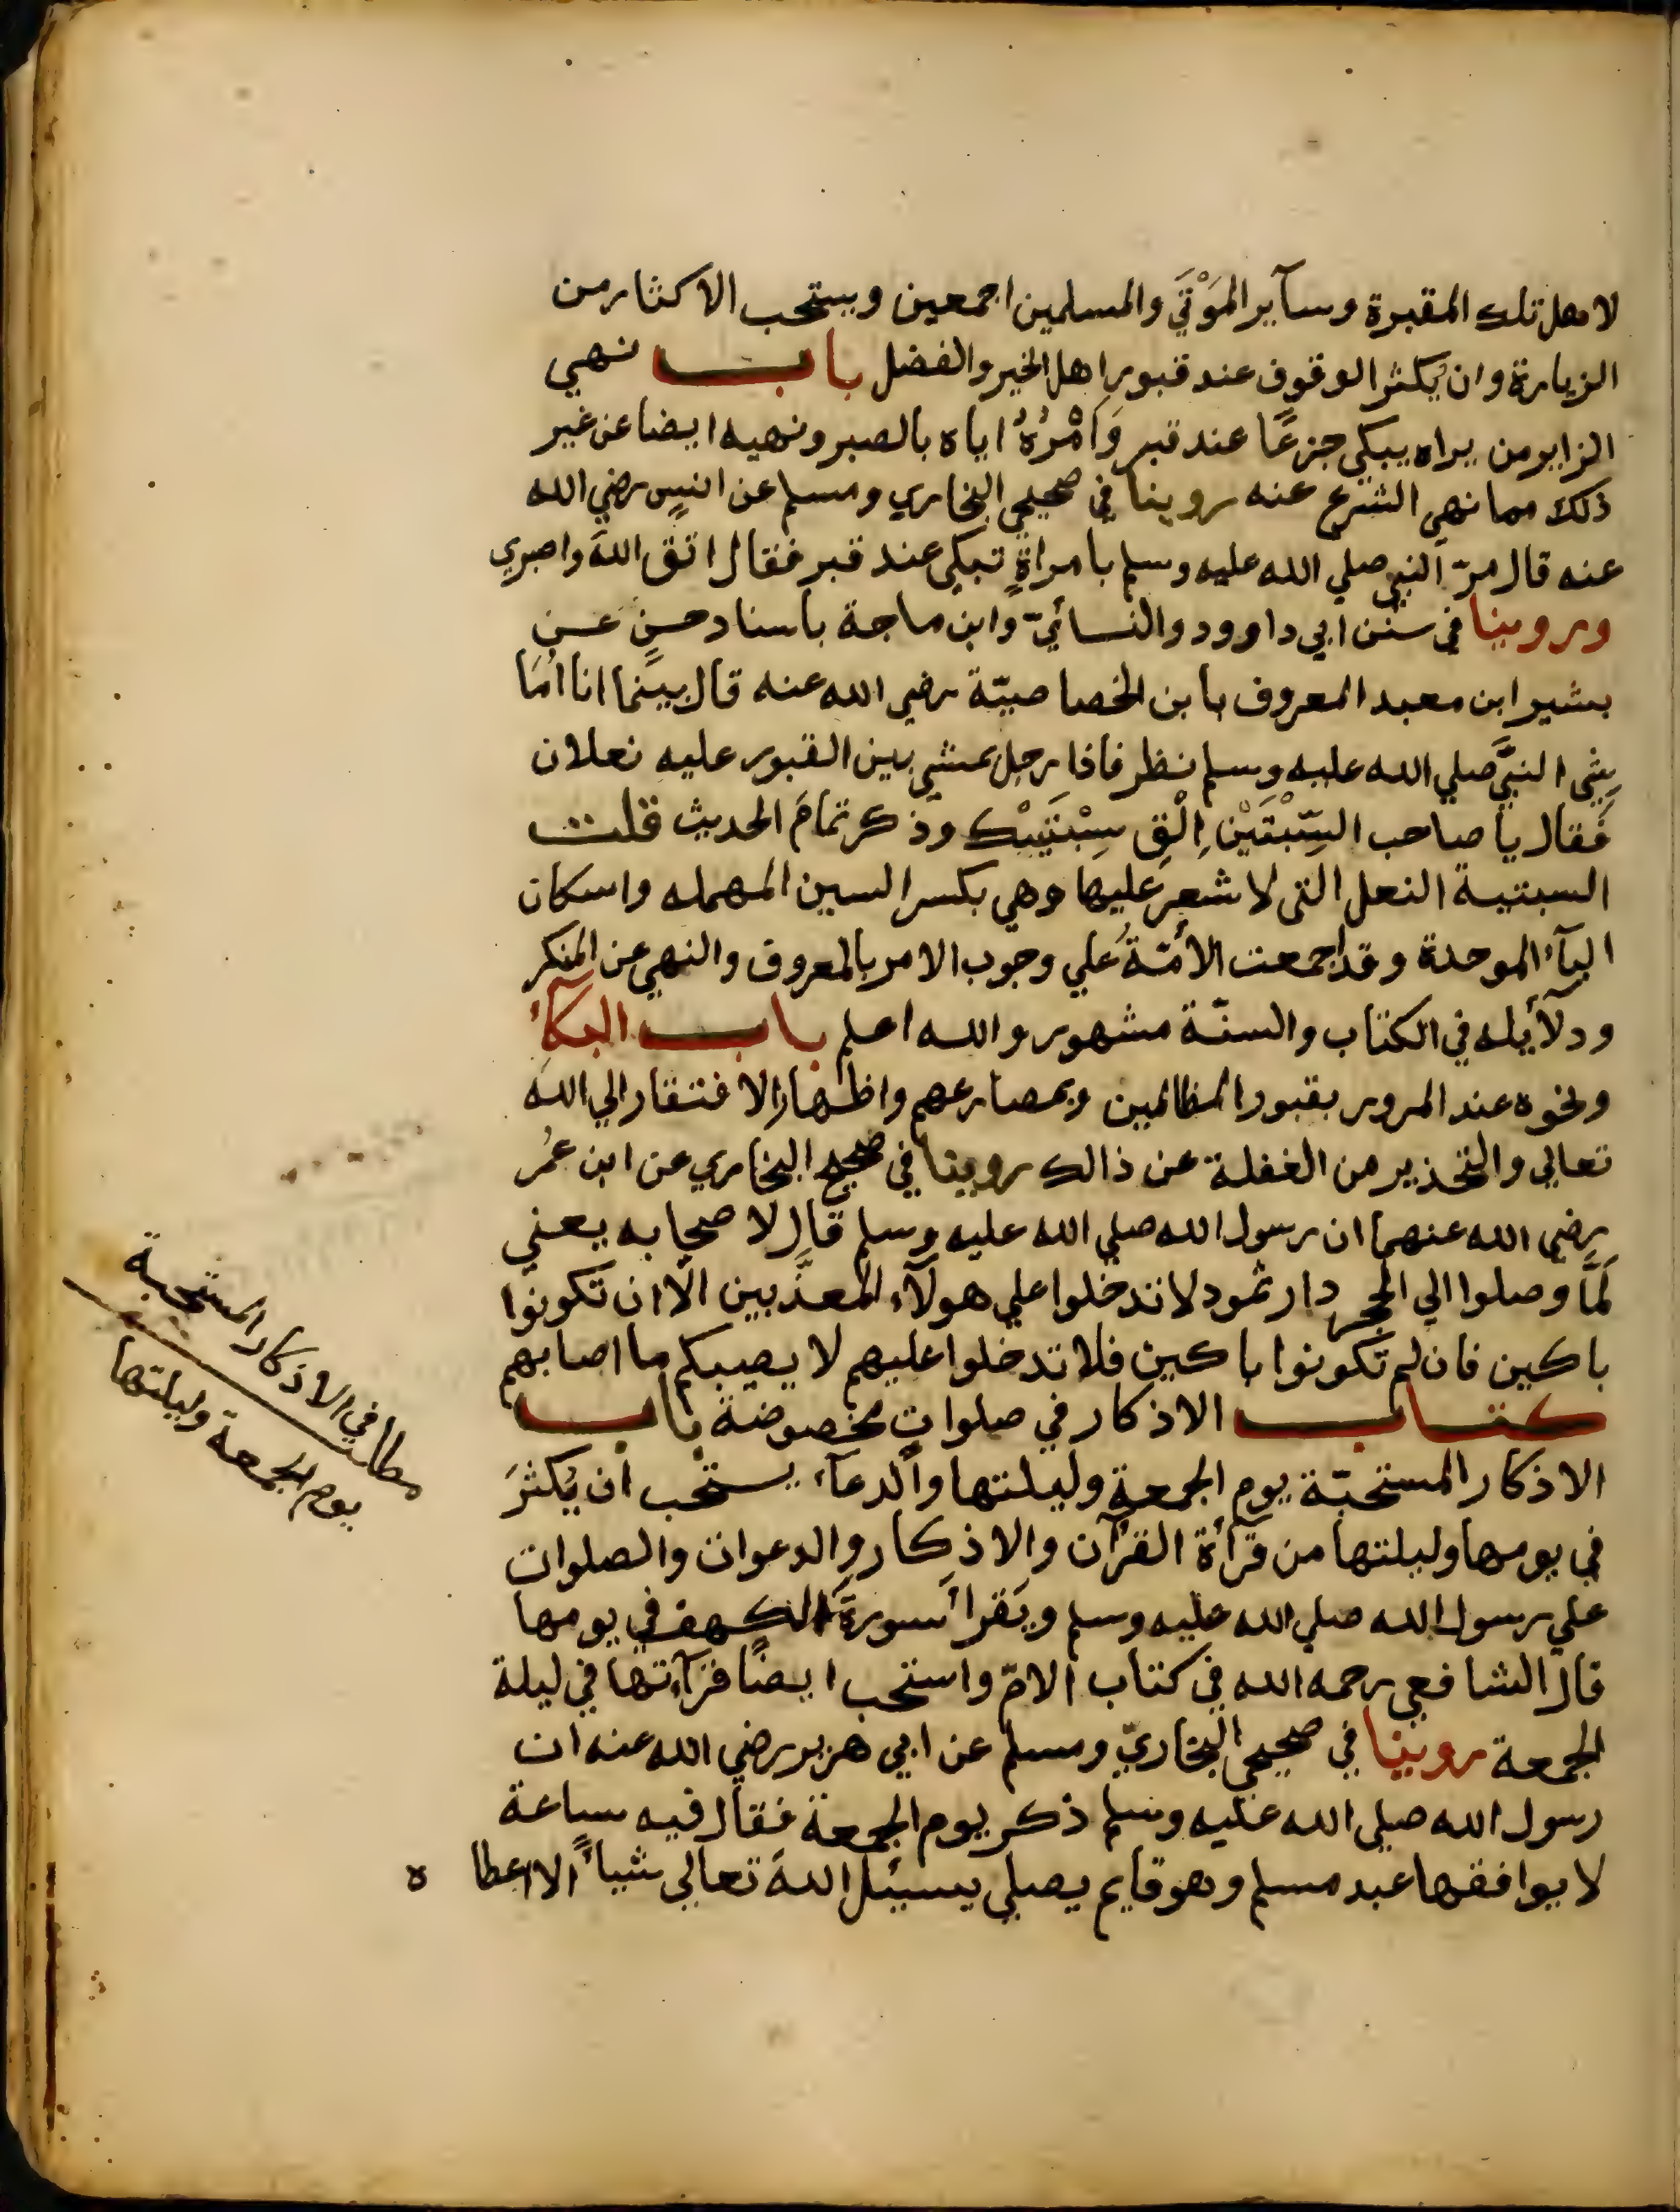 لاهل تلك المقبرة وسآير المَوْتَي والمسلمين اجمعين ويستحب الاكثار من
الزيارة وان يُكثر الوقوف عند قبور اهل الخير والفضل باب نهي
الزاير من يراه يبكي جزعًا عند قبر وَاَمْرُهُ اياه بالصبر ونهيه ايضا عن غير
ذلك مما نهي الشرع عنه روينا في صحيحي البخاري ومسلم عن انسٍ رضي الله
عنه قال مرّ النبي صلي الله عليه وسلم بامراةٍ تبكي عند قبر فقال اتق اللهَ واصبري
وروينا في سنن ابي داوود والنسائيّ وابن ماجة باسناد حسنٍ عن
بشير ابن معبد المعروف بابن الخصاصيّة رضي الله عنه قال بينما انا اُمَا
يِشي النبيَّ صلي الله عليه وسلم نظر فاذا رجل يمشي بين القبور عليه نعلان
فقال يا صاحب السِّبْتَيْنِ اِلْقِ سِبْتَيْك وذكر تمامَ الحديث قلت
السبتية النعل التي لا شعر عليها وهي بكسر السين المهمله واسكان
البآء الموحدة وقد اجمعت الأمّةُ علي وجوب الامر بالمعروف والنهي عن المنكر
ودلآئله في الكتاب والسنّة مشهور والله اعلم باب البكآء
ونحوه عند المرور بقبور الظالمين وبمصارعهم واظهار الافتقار الي الله
تعالي والتحذير من الغفلة عن ذالك روينا في صحيح البخاري عن ابن عُمر
رضي الله عنهما ان رسول الله صلي الله عليه وسلم قال لاصحابه يعني
لَمَّا وصلوا الي الحجر دار ثمود لا تدخلوا علي هولآء المعذَّبين الّا ان تكونوا
باكين فان لم تكونوا باكين فلا تدخلوا عليهم لا يصيبكم ما اصابهم
كتاب الاذكار في صلوات مخصوصة باب
الاذكار المستحبّة يوم الجمعة وليلتها والدعآء يستحب ان يُكثرَ
في يومها وليلتها من قرآأة القرآن والاذكار والدعوات والصلوات
علي رسول الله صلي الله عليه وسلم ويَقرأ سورةَ الكهف في يومها
قال الشافعي رحمه الله في كتاب الامّ واستحب ايضًا قرآءتها في ليلة
الجمعة روينا في صحيحي البخاريّ ومسلم عن ابي هرير رضي الله عنه ان
رسول الله صلي الله عليه وسلم ذكر يوم الجمعة فقال فيه ساعة
لا يوافقها عبد مسلم وهو قايم يصلي يسيئل اللهَ تعالي شيأً الا اعطا ه
مطلب في الاذكار المستحبة
يوم الجمعة وليلتها